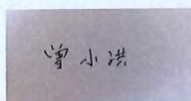 曾小洪